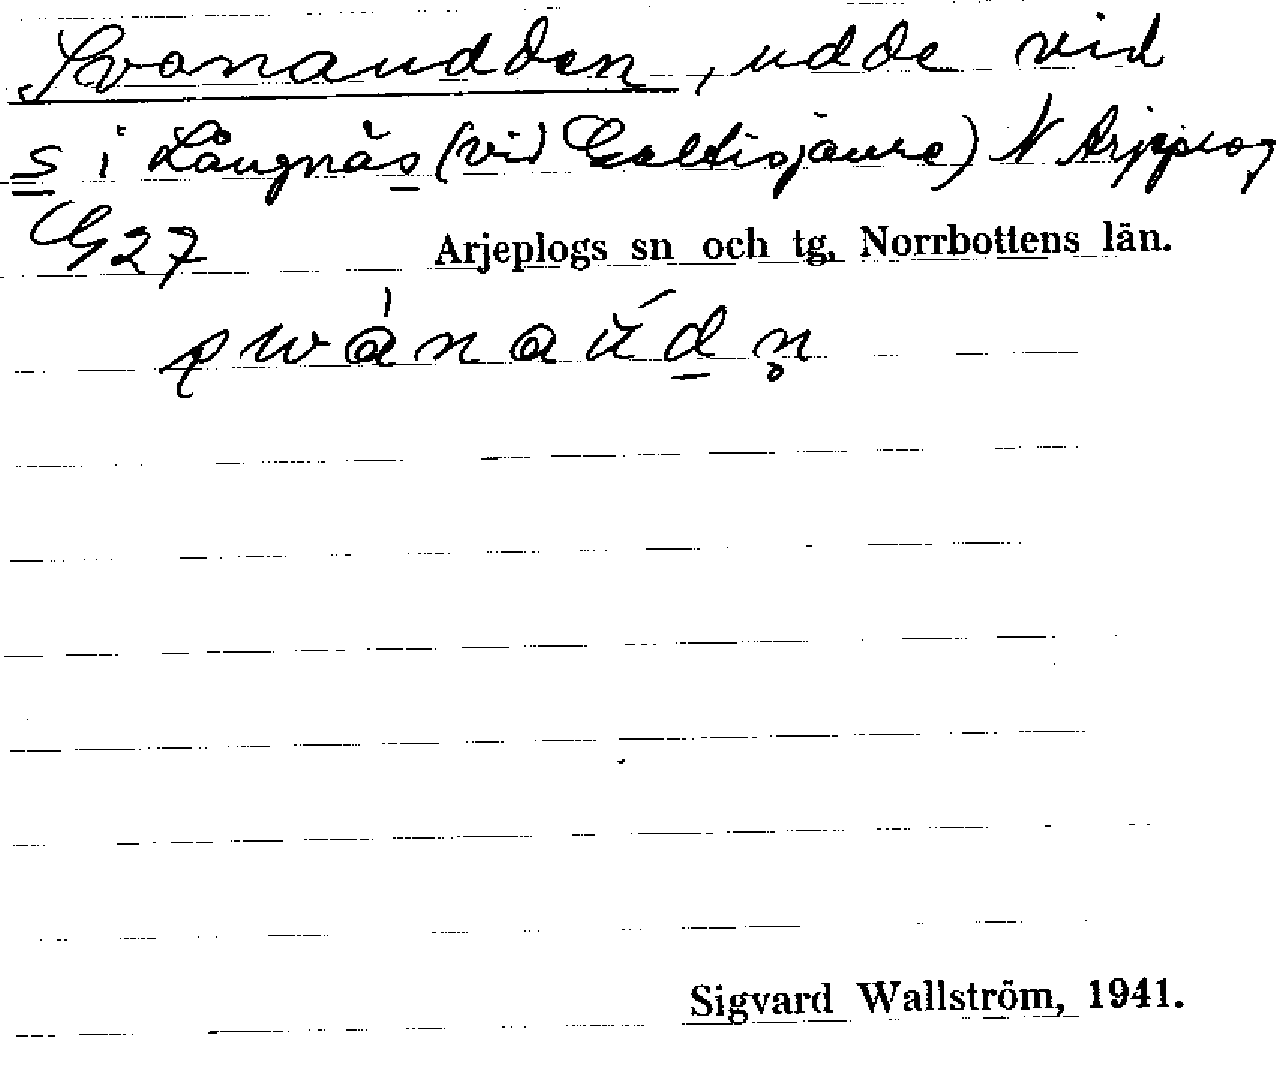 Svanaudden, udde vid
s i Långnäs (vid Galtisjaure) N Arjeplog
G27 Arjeplogs sn och tg. Norrbottens län.
Sigvard Wallström, 1941.